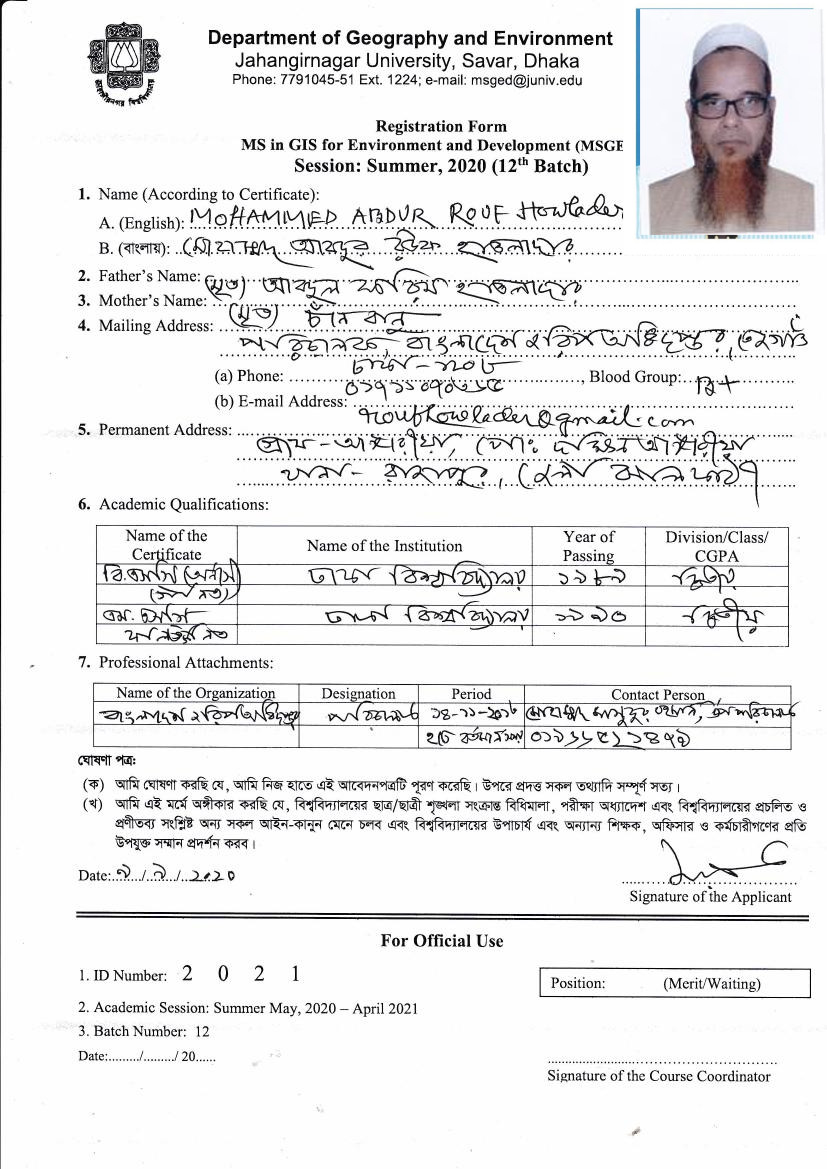 Department of Geography and Environment
Jahangirnagar University, Savar, Dhaka
Phone: 7791045-51 Ext. 1224; e-mail: msged@juniv.edu
জাহাঙ্গীরনগর বিশ্ববিদ্যালয়
Registration Form
MS in GIS for Environment and Development (MSGE
Session: Summer, 2020 (12th Batch)
1. Name (According to Certificate):
A. (English): MOHAMMED ABDUR ROUF Howlader
B. (বাংলায়): মোহাম্মদ আবদুর রউফ হাওলাদার
2. Father's Name: (মৃত) আবদুল হাওলাদার
3. Mother's Name: (মৃত) চাঁন বানু
4. Mailing Address: পরিচালক, বাংলাদেশ জরিপ অধিদপ্তর, তেজগাঁও
ঢাকা-১২০৮
(a) Phone: Blood Group: বি+
(b) E-mail Address: roufhowlader@gmail.com
5. Permanent Address: গ্রাম- পোঃ দক্ষিণ
থানা- রাজাপুর, জেলা ঝালকাঠি
6. Academic Qualifications:
Name of the Certificate Name of the Institution Year of Passing Division/Class/ CGPA
বি.এসসি (অনার্স) ঢাকা বিশ্ববিদ্যালয় ১৯৮৯ দ্বিতীয়
এম. এসসি ঢাকা বিশ্ববিদ্যালয় ১৯৯০ দ্বিতীয়
7. Professional Attachments:
Name of the Organization Designation Period Contact Person
বাংলাদেশ জরিপ অধিদপ্তর পরিচালক ১৪-১১-২০১৮ উপ পরিচালক
হতে বর্তমান
ঘোষণা পত্র:
(ক) আমি ঘোষণা করছি যে, আমি নিজ হাতে এই আবেদনপত্রটি পূরণ করেছি। উপরে প্রদত্ত সকল তথ্যাদি সম্পূর্ণ সত্য।
(খ) আমি এই মর্মে অঙ্গীকার করছি যে, বিশ্ববিদ্যালয়ের ছাত্র/ছাত্রী শৃঙ্খলা সংক্রান্ত বিধিমালা, পরীক্ষা অধ্যাদেশ এবং বিশ্ববিদ্যালয়ের প্রচলিত ও
প্রণীতব্য সংশ্লিষ্ট অন্য সকল আইন-কানুন মেনে চলব এবং বিশ্ববিদ্যালয়ের উপাচার্য এবং অন্যান্য শিক্ষক, অফিসার ও কর্মচারীগণের প্রতি
উপযুক্ত সম্মান প্রদর্শন করব।
Date: ৯/৯/2020
Signature of the Applicant
For Official Use
1. ID Number: 2 0 2 1
Position: (Merit/Waiting)
2. Academic Session: Summer May, 2020 – April 2021
3. Batch Number: 12
Date:........./........./ 20......
Signature of the Course Coordinator